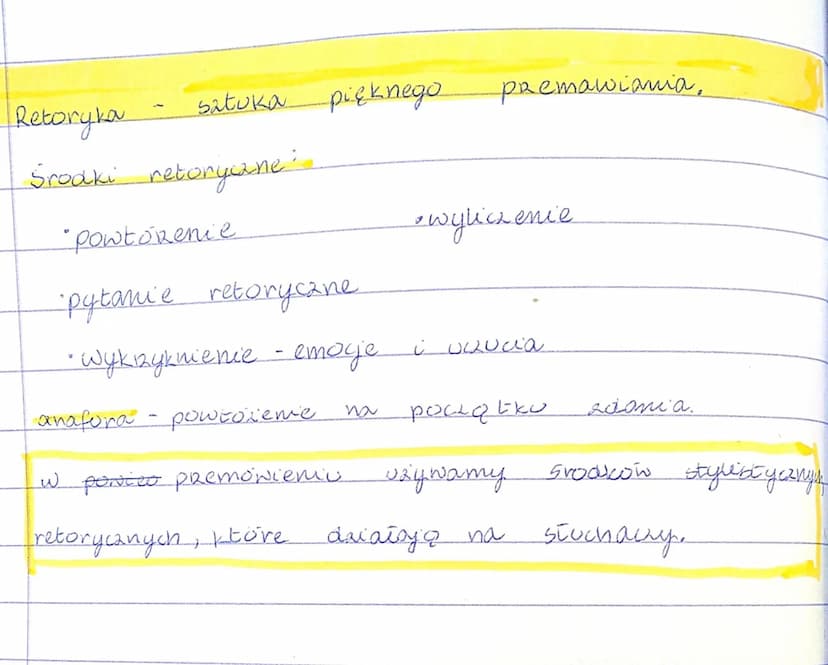 Retoryka - sztuka pięknego przemawiania.
Środki retoryczne:
•powtórzenie •wyliczenie
•pytanie retoryczne
•wykrzyknienie - emocje i uczucia
anafora - powtórzenie na początku zdania.
w przemówieniu używamy środków stylistycznych,
retorycznych, które działają na słuchaczy.